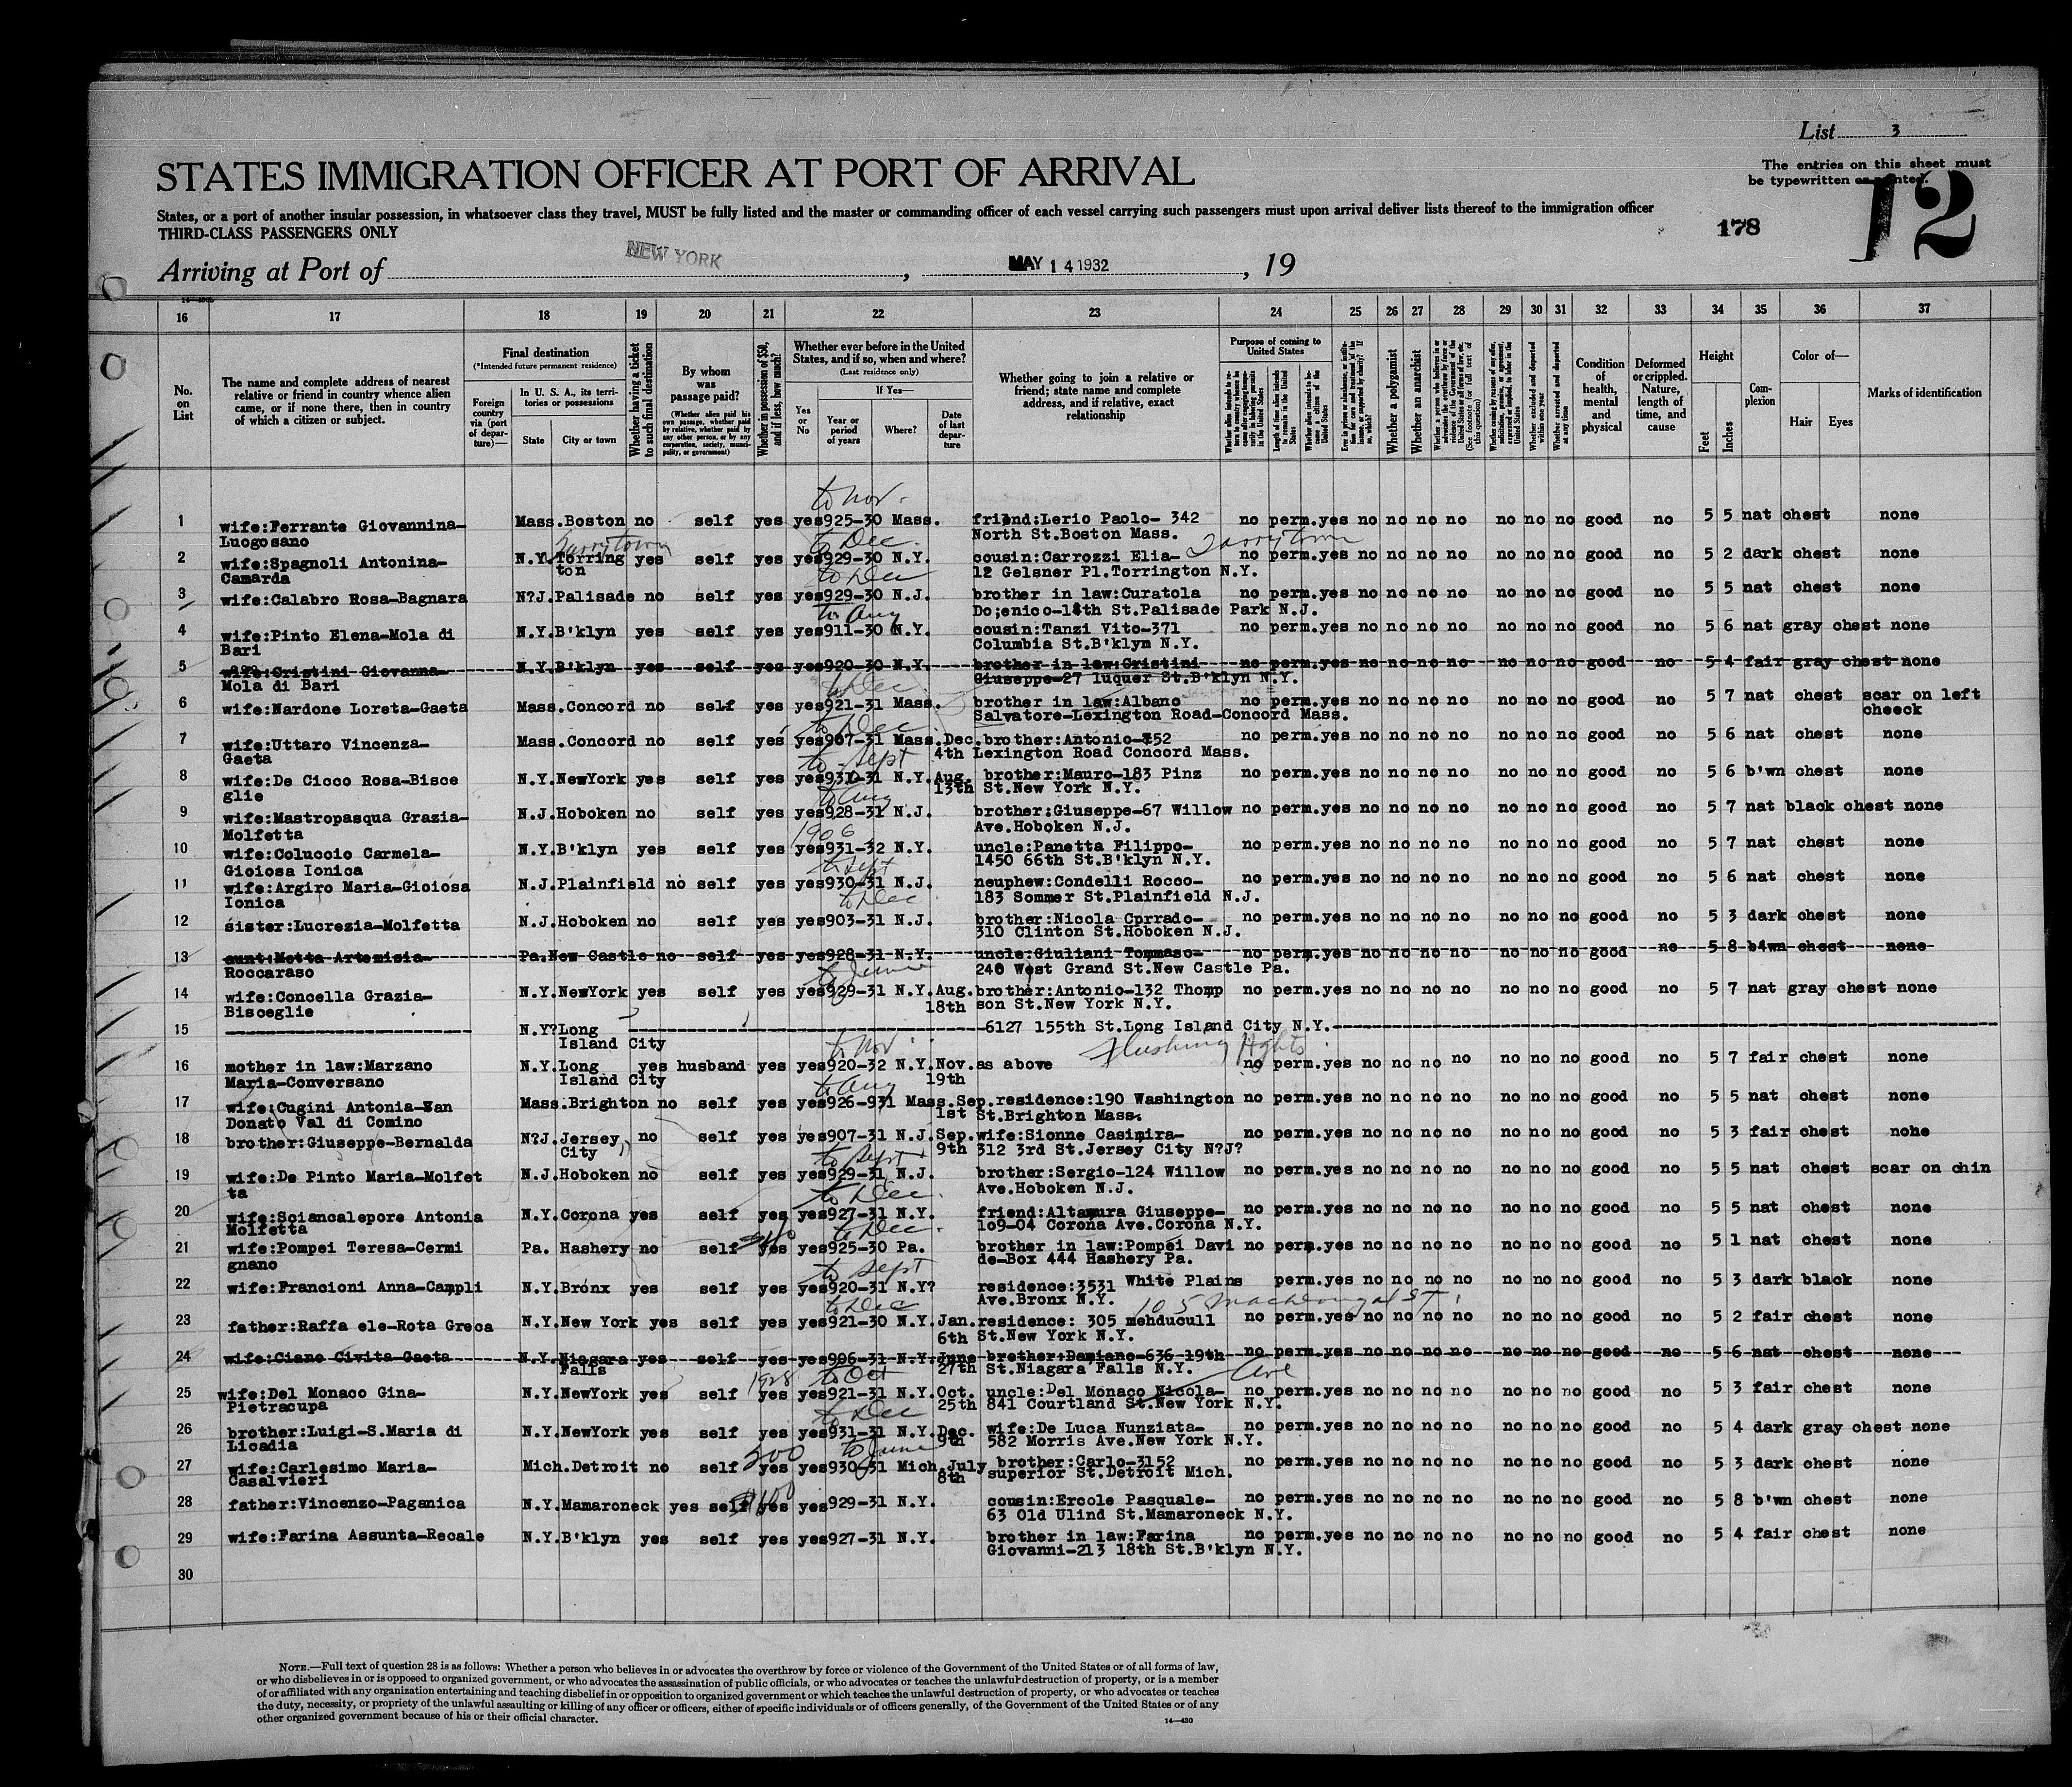 List 3
The entries on this sheet must
be typewritten or printed.
12
178
STATES IMMIGRATION OFFICER AT PORT OF ARRIVAL
States, or a port of another insular possession, in whatsoever class they travel, MUST be fully listed and the master or commanding officer of each vessel carrying such passengers must upon arrival deliver lists thereof to the immigration officer
THIRD-CLASS PASSENGERS ONLY
Arriving at Port of NEW YORK, MAY 14 1932, 19
16 17 18 19 20 21 22 23 24 25 26 27 28 29 30 31 32 33 34 35 36 37
No. on List
The name and complete address of nearest relative or friend in country whence alien came, or if none there, then in country of which a citizen or subject.
Final destination
(*Intended future permanent residence)
Foreign country via (port of departure)—
In U. S. A., its territories or possessions
State
City or town
Whether having a ticket to such final destination
By whom was passage paid?
(Whether alien paid his own passage, whether paid by relative, whether paid by any other person, or by any corporation, society, municipality, or government)
Whether in possession of $50, and if less, how much?
Whether ever before in the United States, and if so, when and where?
(Last residence only)
Yes or No
If Yes—
Year or period of years
Where?
Date of last departure
Whether going to join a relative or friend; state name and complete address, and if relative, exact relationship
Purpose of coming to United States
Length of time alien intends to remain in the United States
Whether alien intends to become a citizen of the United States
Whether a polygamist
Whether an anarchist
Whether excluded and deported within one year
Whether arrested and deported at any time
Condition of health, mental and physical
Deformed or crippled. Nature, length of time, and cause
Height
Feet
Inches
Complexion
Color of—
Hair
Eyes
Marks of identification
to Nov.
1 wife:Ferrante Giovannina- Mass.Boston no self yes yes925-30 Mass. friend:Lerio Paolo- 342 no perm.yes no no no no no no no good no 5 5 nat chest none
Luogosano North St.Boston Mass.
Tarrytown to Dec. Tarrytown
2 wife:Spagnoli Antonina- N.Y.Torring yes self yes yes929-30 N.Y. cousin:Carrozzi Elia- no perm.yes no no no no no no no good no 5 2 dark chest none
Camarda ton 12 Gelsner Pl.Torrington N.Y.
to Dec
3 wife:Calabro Rosa-Bagnara N?J.Palisade no self yes yes929-30 N.J. brother in law:Curatola no perm.yes no no no no no no no good no 5 5 nat chest none
Do;enico-18th St.Palisade Park N.J.
to Aug
4 wife:Pinto Elena-Mola di N.Y.B'klyn yes self yes yes911-30 N.Y. cousin:Tanzi Vito-371 no perm.yes no no no no no no no good no 5 6 nat gray chest none
Bari Columbia St.B'klyn N.Y.
5 wife:Cristini Giovanna- N.Y.B'klyn yes self yes yes920-30 N.Y. brother in law:Cristini no perm.yes no no no no no no no good no 5 4 fair gray chest none
Mola di Bari Giuseppe-27 luquer St.B'klyn N.Y.
to Dec. SALVATORE
6 wife:Nardone Loreta-Gaeta Mass.Concord no self yes yes921-31 Mass. brother in law:Albano no perm.yes no no no no no no no good no 5 7 nat chest scar on left
Salvatore-Lexington Road-Concord Mass. cheeck
to Dec
7 wife:Uttaro Vincenza- Mass.Concord no self yes yes907-31 Mass.Dec. brother:Antonio-852 no perm.yes no no no no no no no good no 5 6 nat chest none
Gaeta 4th Lexington Road Concord Mass.
to Sept
8 wife:De Cicco Rosa-Bisce N.Y.NewYork yes self yes yes930-31 N.Y.Aug. brother:Mauro-183 Pinz no perm.yes no no no no no no no good no 5 6 b'wn chest none
glie 13th St.New York N.Y.
to Aug
9 wife:Mastropasqua Grazia- N.J.Hoboken no self yes yes928-31 N.J. brother:Giuseppe-67 Willow no perm.yes no no no no no no no good no 5 7 nat black chest none
Molfetta Ave.Hoboken N.J.
1906
10 wife:Coluccio Carmela- N.Y.B'klyn yes self yes yes931-32 N.Y. uncle:Panetta Filippo- no perm.yes no no no no no no no good no 5 7 nat chest none
Gioiosa Ionica 1450 66th St.B'klyn N.Y.
to Sept
11 wife:Argiro Maria-Gioiosa N.J.Plainfield no self yes yes930-31 N.J. neuphew:Condelli Rocco- no perm.yes no no no no no no no good no 5 6 nat chest none
Ionica 183 Sommer St.Plainfield N.J.
to Dec
12 sister:Lucrezia-Molfetta N.J.Hoboken no self yes yes903-31 N.J. brother:Nicola Cprrado- no perm.yes no no no no no no no good no 5 3 dark chest none
310 Clinton St.Hoboken N.J.
13 aunt:Motta Artemisia- Pa.New Castle no self yes yes928-31 N.Y. uncle:Giuliani Tommaso- no perm.yes no no no no no no no good no 5 8 b4wn chest none
Roccaraso 240 West Grand St.New Castle Pa.
to June
14 wife:Concella Grazia- N.Y.NewYork yes self yes yes929-31 N.Y.Aug. brother:Antonio-132 Thomp no perm.yes no no no no no no no good no 5 7 nat gray chest none
Bisceglie 18th son St.New York N.Y.
15 N.Y?Long 6127 155th St.Long Island City N.Y.
Island City
to Nov. Flushing Hghts
16 mother in law:Marzano N.Y.Long yes husband yes yes920-32 N.Y.Nov. as above no perm.yes no no no no no no no good no 5 7 fair chest none
Maria-Conversano Island City 19th
to Aug
17 wife:Cugini Antonia-San Mass.Brighton no self yes yes926-931 Mass.Sep. residence:190 Washington no perm.yes no no no no no no no good no 5 5 nat chest none
Donato Val di Comino 1st St.Brighton Mass.
18 brother:Giuseppe-Bernalda N?J.Jersey no self yes yes907-31 N.J.Sep. wife:Sionne Casimira- no perm.yes no no no no no no no good no 5 3 fair chest nohe
City 9th 312 3rd St.Jersey City N?J?
to Sept
19 wife:De Pinto Maria-Molfet N.J.Hoboken no self yes yes929-31 N.J. brother:Sergio-124 Willow no perm.yes no no no no no no no good no 5 5 nat chest scar on chin
ta Ave.Hoboken N.J.
to Dec.
20 wife:Sciancalepore Antonia N.Y.Corona yes self yes yes927-31 N.Y. friend:Altamura Giuseppe- no perm.yes no no no no no no no good no 5 5 nat chest none
Molfetta 109-04 Corona Ave.Corona N.Y.
to Dec.
21 wife:Pompei Teresa-Cermi Pa. Hashery no self yes yes925-30 Pa. brother in law:Pompei Davi no perm.yes no no no no no no no good no 5 1 nat chest none
gnano de-Box 444 Hashery Pa.
to Sept
22 wife:Francioni Anna-Campli N.Y.Bronx yes self yes yes920-31 N.Y? residence:3531 White Plains perm.yes no no no no no no no good no 5 3 dark black none
Ave.Bronx N.Y.
to Dec 105 Macdougal ST.
23 father:Raffa ele-Rota Greca N.Y.New York yes self yes yes921-30 N.Y.Jan. residence: 305 mehducull no perm.yes no no no no no no no good no 5 2 fair chest none
6th St.New York N.Y.
24 wife:Ciano Civita Gaeta N.Y.Niagara yes self yes yes906-31 N.Y.June brother:Damiano-636 19th no perm.yes no no no no no no no good no 5 6 nat chest none
Falls 27th St.Niagara Falls N.Y.
1928 to Oct Ave
25 wife:Del Monaco Gina- N.Y.NewYork yes self yes yes921-31 N.Y.Oct. uncle:Del Monaco Nicola- no perm.yes no no no no no no no good no 5 3 fair chest none
Pietracupa 25th 841 Courtland St.New York N.Y.
to Dec
26 brother:Luigi-S.Maria di N.Y.NewYork yes self yes yes931-31 N.Y.Dec. wife:De Luca Nunziata- no perm.yes no no no no no no no good no 5 4 dark gray chest none
Licadia 9th 582 Morris Ave.New York N.Y.
200 to June
27 wife:Carlesimo Maria- Mich.Detroit no self yes yes930-31 Mich.July brother:Carlo-3152 no perm.yes no no no no no no no good no 5 3 dark chest none
Casalvieri 8th superior St.Detroit Mich.
$100
28 father:Vincenzo-Paganica N.Y.Mamaroneck yes self yes yes929-31 N.Y. cousin:Ercole Pasquale- no perm.yes no no no no no no no good no 5 8 b'wn chest none
63 Old Ulind St.Mamaroneck N.Y.
29 wife:Farina Assunta-Recale N.Y.B'klyn yes self yes yes927-31 N.Y. brother in law:Farina no perm.yes no no no no no no no good no 5 4 fair chest none
Giovanni-213 18th St.B'klyn N.Y.
30
NOTE.—Full text of question 28 is as follows: Whether a person who believes in or advocates the overthrow by force or violence of the Government of the United States or of all forms of law,
or who disbelieves in or is opposed to organized government, or who advocates the assassination of public officials, or who advocates or teaches the unlawful destruction of property, or is a member
of or affiliated with any organization entertaining and teaching disbelief in or opposition to organized government or which teaches the unlawful destruction of property, or who advocates or teaches
the duty, necessity, or propriety of the unlawful assaulting or killing of any officer or officers, either of specific individuals or of officers generally, of the Government of the United States or of any
other organized government because of his or their official character.
14—430